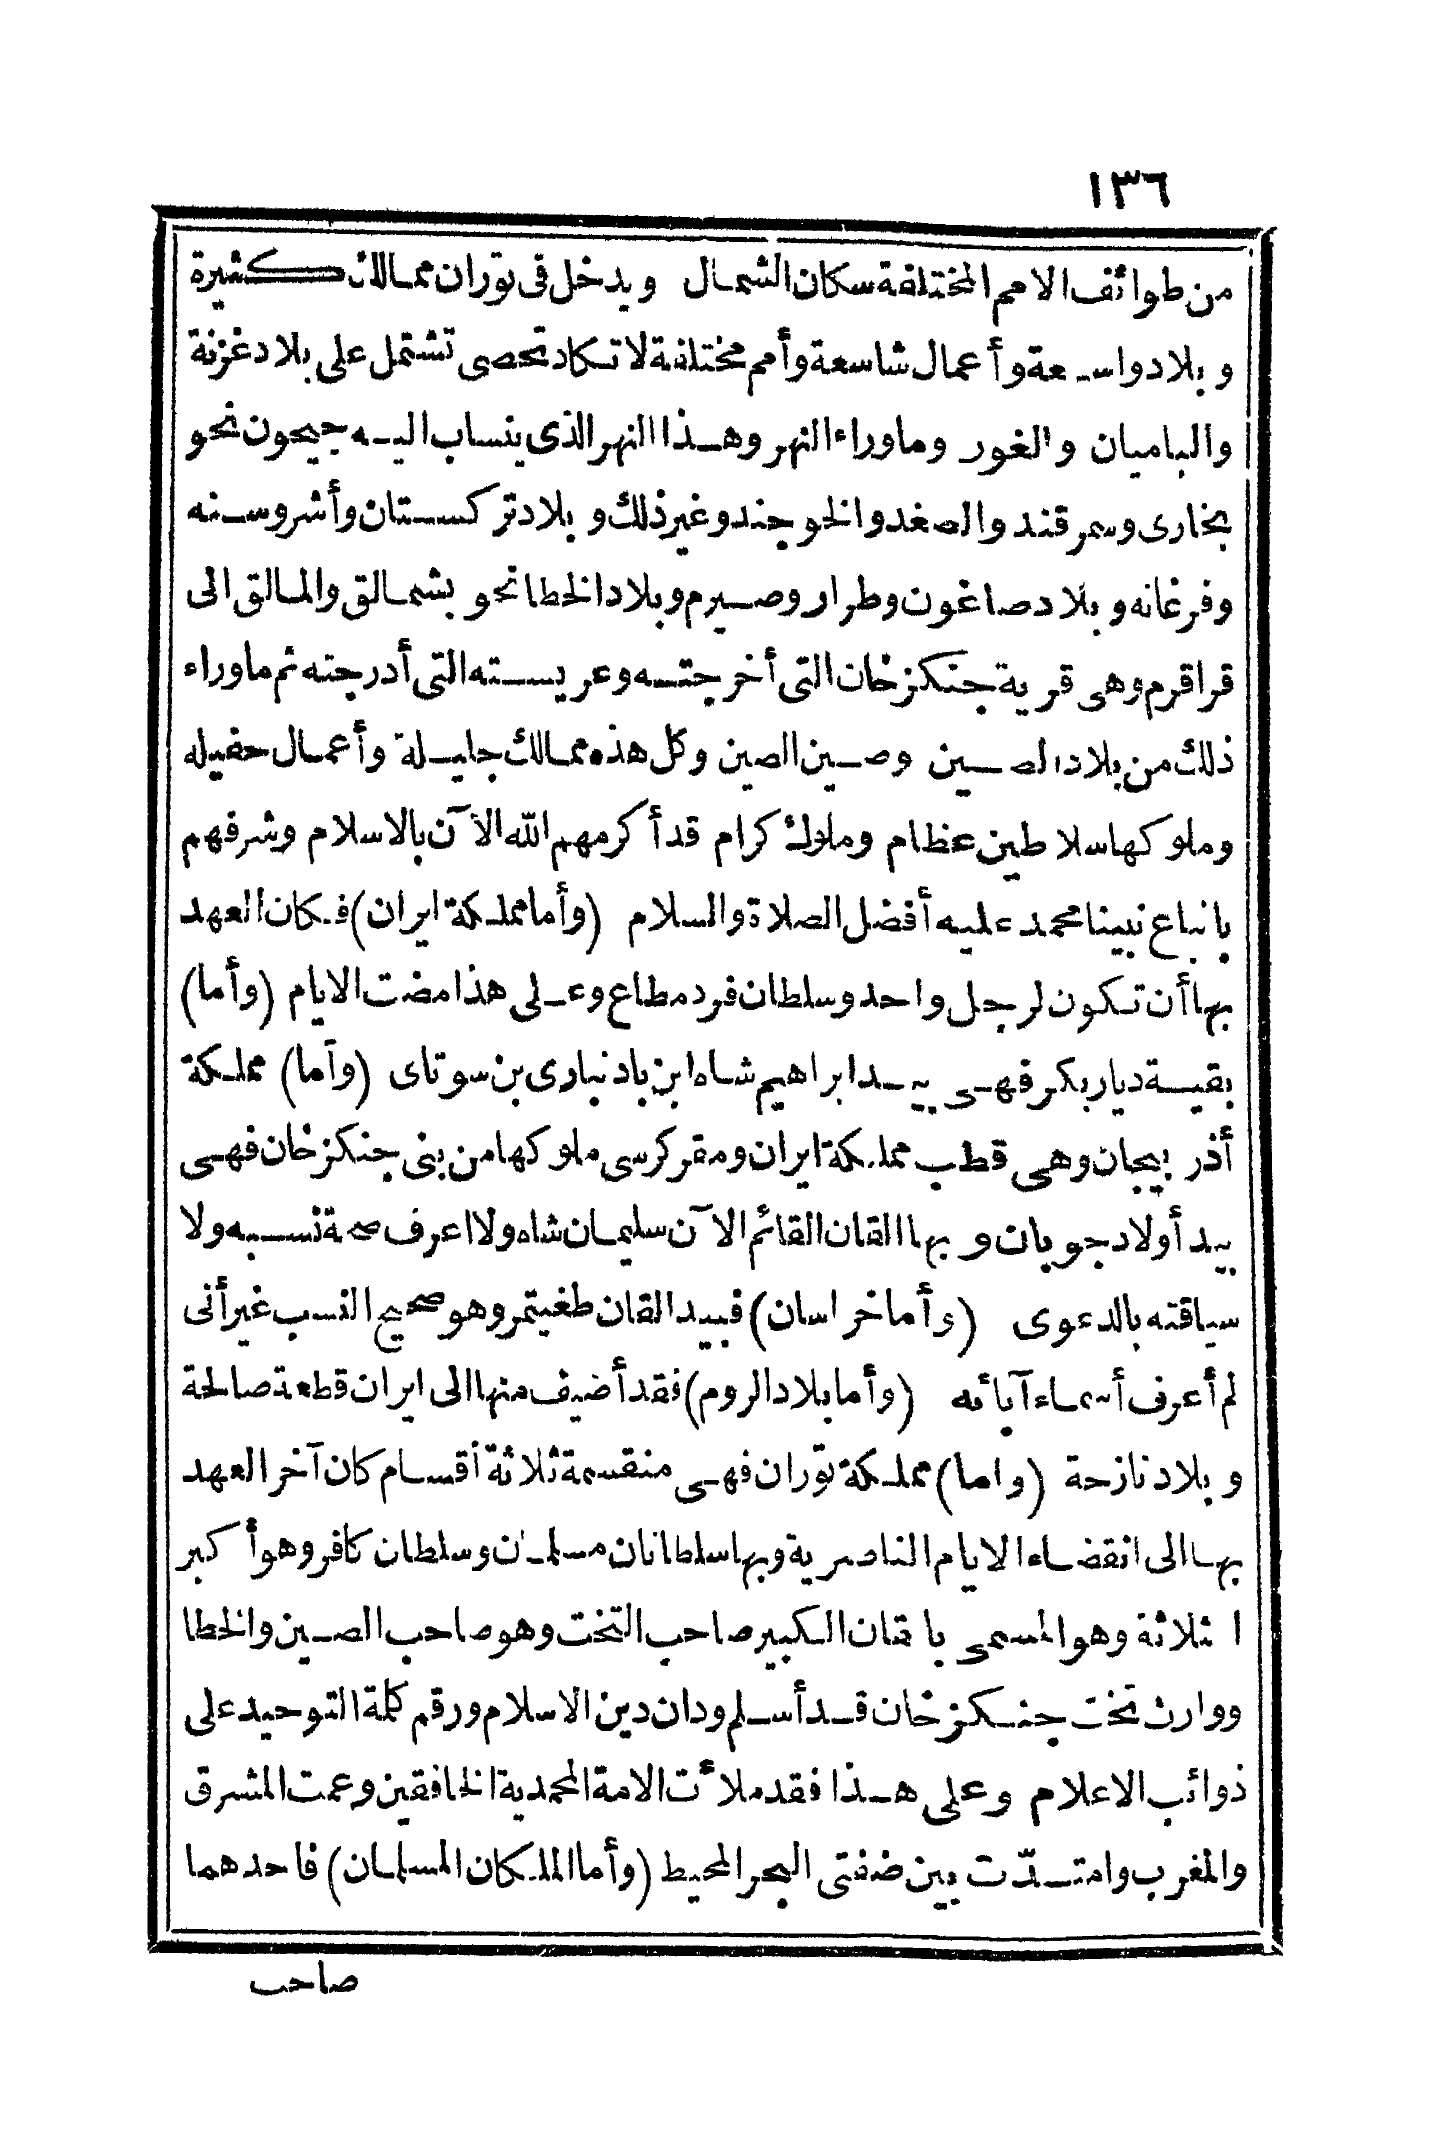 ١٣٦
من طوائف الامم المختلفة سكان الشمال ويدخل فى توران ممالك كثيرة
وبلاد واسعة وأعمال شاسعة وأمم مختلفة لا تكاد تحصى تشتمل على بلاد غزنة
والباميان والغور وما وراء النهر وهذا النهر الذى ينساب اليه جيحون نحو
بخارى وسمرقند والصغد والخوجند وغير ذلك وبلاد تركستان وأشروسنه
وفرغانه وبلاد صاغون وطرار وصيرم وبلاد الخطا نحو بشمالق والمالق الى
قراقرم وهى قرية جنكزخان التى أخرجته وعريسته التى أدرجته ثم ما وراء
ذلك من بلاد الصين وصين الصين وكل هذه ممالك جليلة وأعمال حفيله
وملوكها سلاطين عظام وملوك كرام قد أكرمهم الله الآن بالاسلام وشرفهم
باتباع نبينا محمد عليه أفضل الصلاة والسلام (وأما مملكة ايران) فكان العهد
بها أن تكون لرجل واحد وسلطان فرد مطاع وعلى هذا مضت الايام (وأما)
بقية ديار بكر فهى بيد ابراهيم شاه ابن بادنبارى بن سوتاى (وأما) مملكة
أذربيجان وهى قطب مملكة ايران ومقر كرسى ملوكها من بنى جنكزخان فهى
بيد أولاد جوبان وبها القان القائم الآن سليمان شاه ولا اعرف صحة نسبه ولا
سياقته بالدعوى (وأما خراسان) فبيد القان طغيتمر وهو صحيح النسب غير أنى
لم أعرف أسماء آبائه (وأما بلاد الروم) فقد أضيف منها الى ايران قطعة صالحة
وبلاد نازحة (واما) مملكة توران فهى منقسمة ثلاثة أقسام كان آخر العهد
بها الى انقضاء الايام الناصرية وبها سلطانان مسلمان وسلطان كافر وهو أكبر
ا ثلاثة وهو المسمى بالقان الكبير صاحب التخت وهو صاحب الصين والخطا
ووارث تخت جنكزخان قد أسلم ودان دين الاسلام ورقم كلمة التوحيد على
ذوائب الاعلام وعلى هذا فقد ملأت الامة المحمدية الخافقين وعمت المشرق
والمغرب وامتدّت بين ضفتى البحر المحيط (وأما الملكان المسلمان) فاحدهما
صاحب